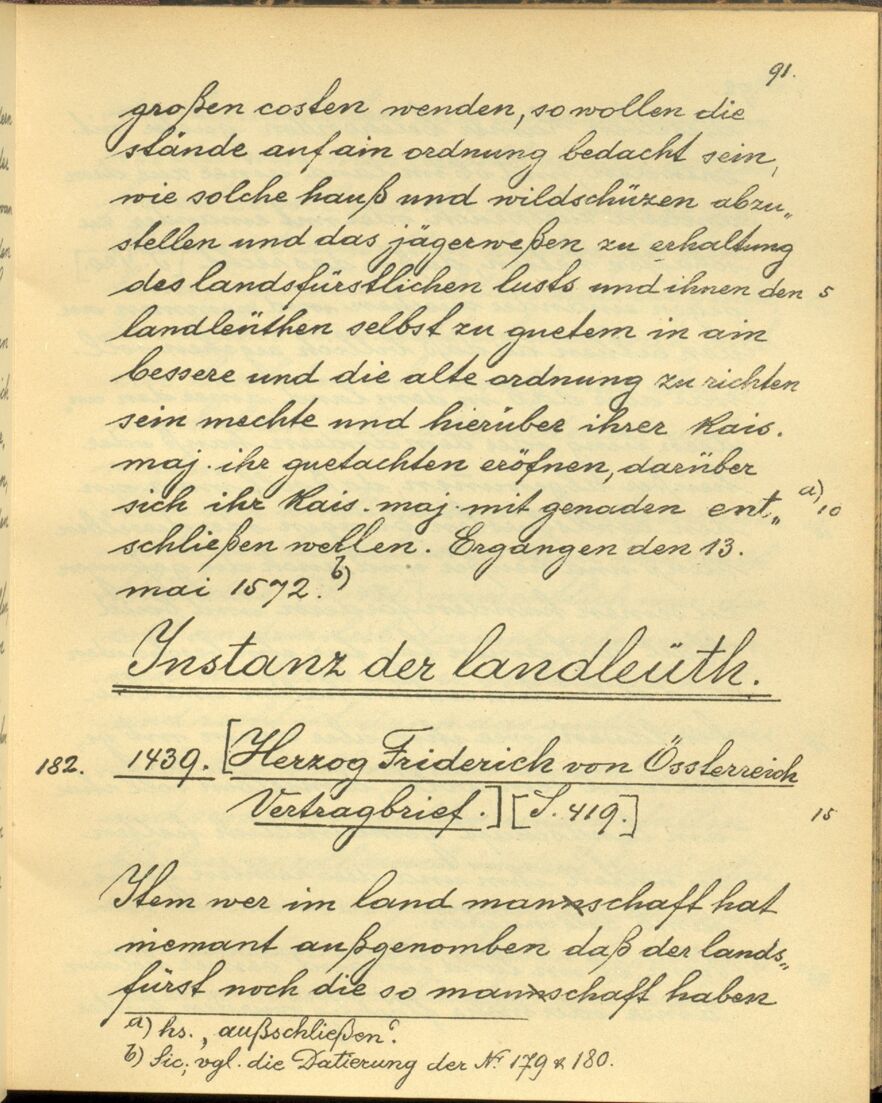 91.
großen costen wenden, so wollen die
stände auf ain ordnung bedacht sein,
wie solche hauß und wildschüzen abzu„
stellen und das jägerweßen zu erhaltung
des landsfürstlichen lusts und ihnen den 5
landleüthen selbst zu guetem in ain
bessere und die alte ordnung zu richten
sein mechte und hierüber ihrer kais.
maj. ihr guetachten eröfnen, darüber
sich ihr kais. maj. mit genaden ent„ a) 10
schließen wellen. Ergangen den 13.
mai 1572. b)
Instanz der landleüth.
182. 1439. [Herzog Friderich von Össterreich
Vertragbrief.] [S. 419.] 15
Item wer im land mannschaft hat
niemant außgenomben daß der lands„
fürst noch die so mannschaft haben
a) hs. „außschließen“.
b) Sic; vgl. die Datierung der № 179 & 180.